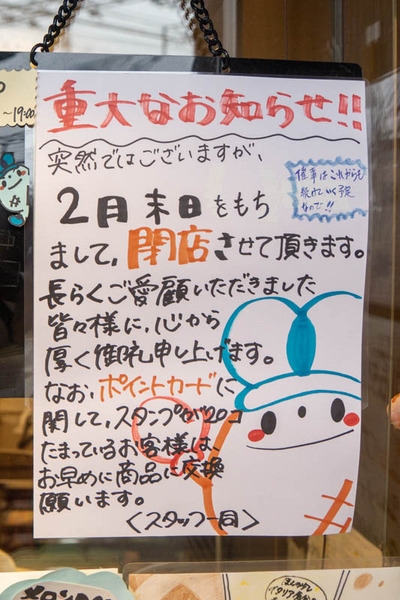 ~19:00
重大なお知らせ!!
突然ではございますが、
催事はこれからも
続けていく予定
なので!!
2月末日をもち
まして、閉店させて頂きます。
長らくご愛顧いただきました
皆々様に、心から
厚く御礼申し上げます。
なお、ポイントカードに
関して、スタンプが20コ
たまっているお客様は
お早めに商品に交換
願います。
<スタッフ一同>
メロン